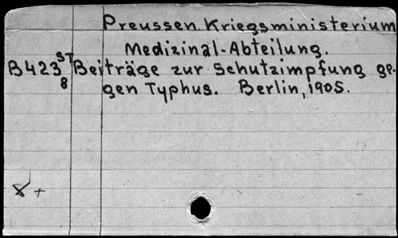 Preussen. Kriegsministerium
Medizinal-Abteilung.
B423 ST 8 Beiträge zur Schutzimpfung ge-
gen Typhus. Berlin, 1905.